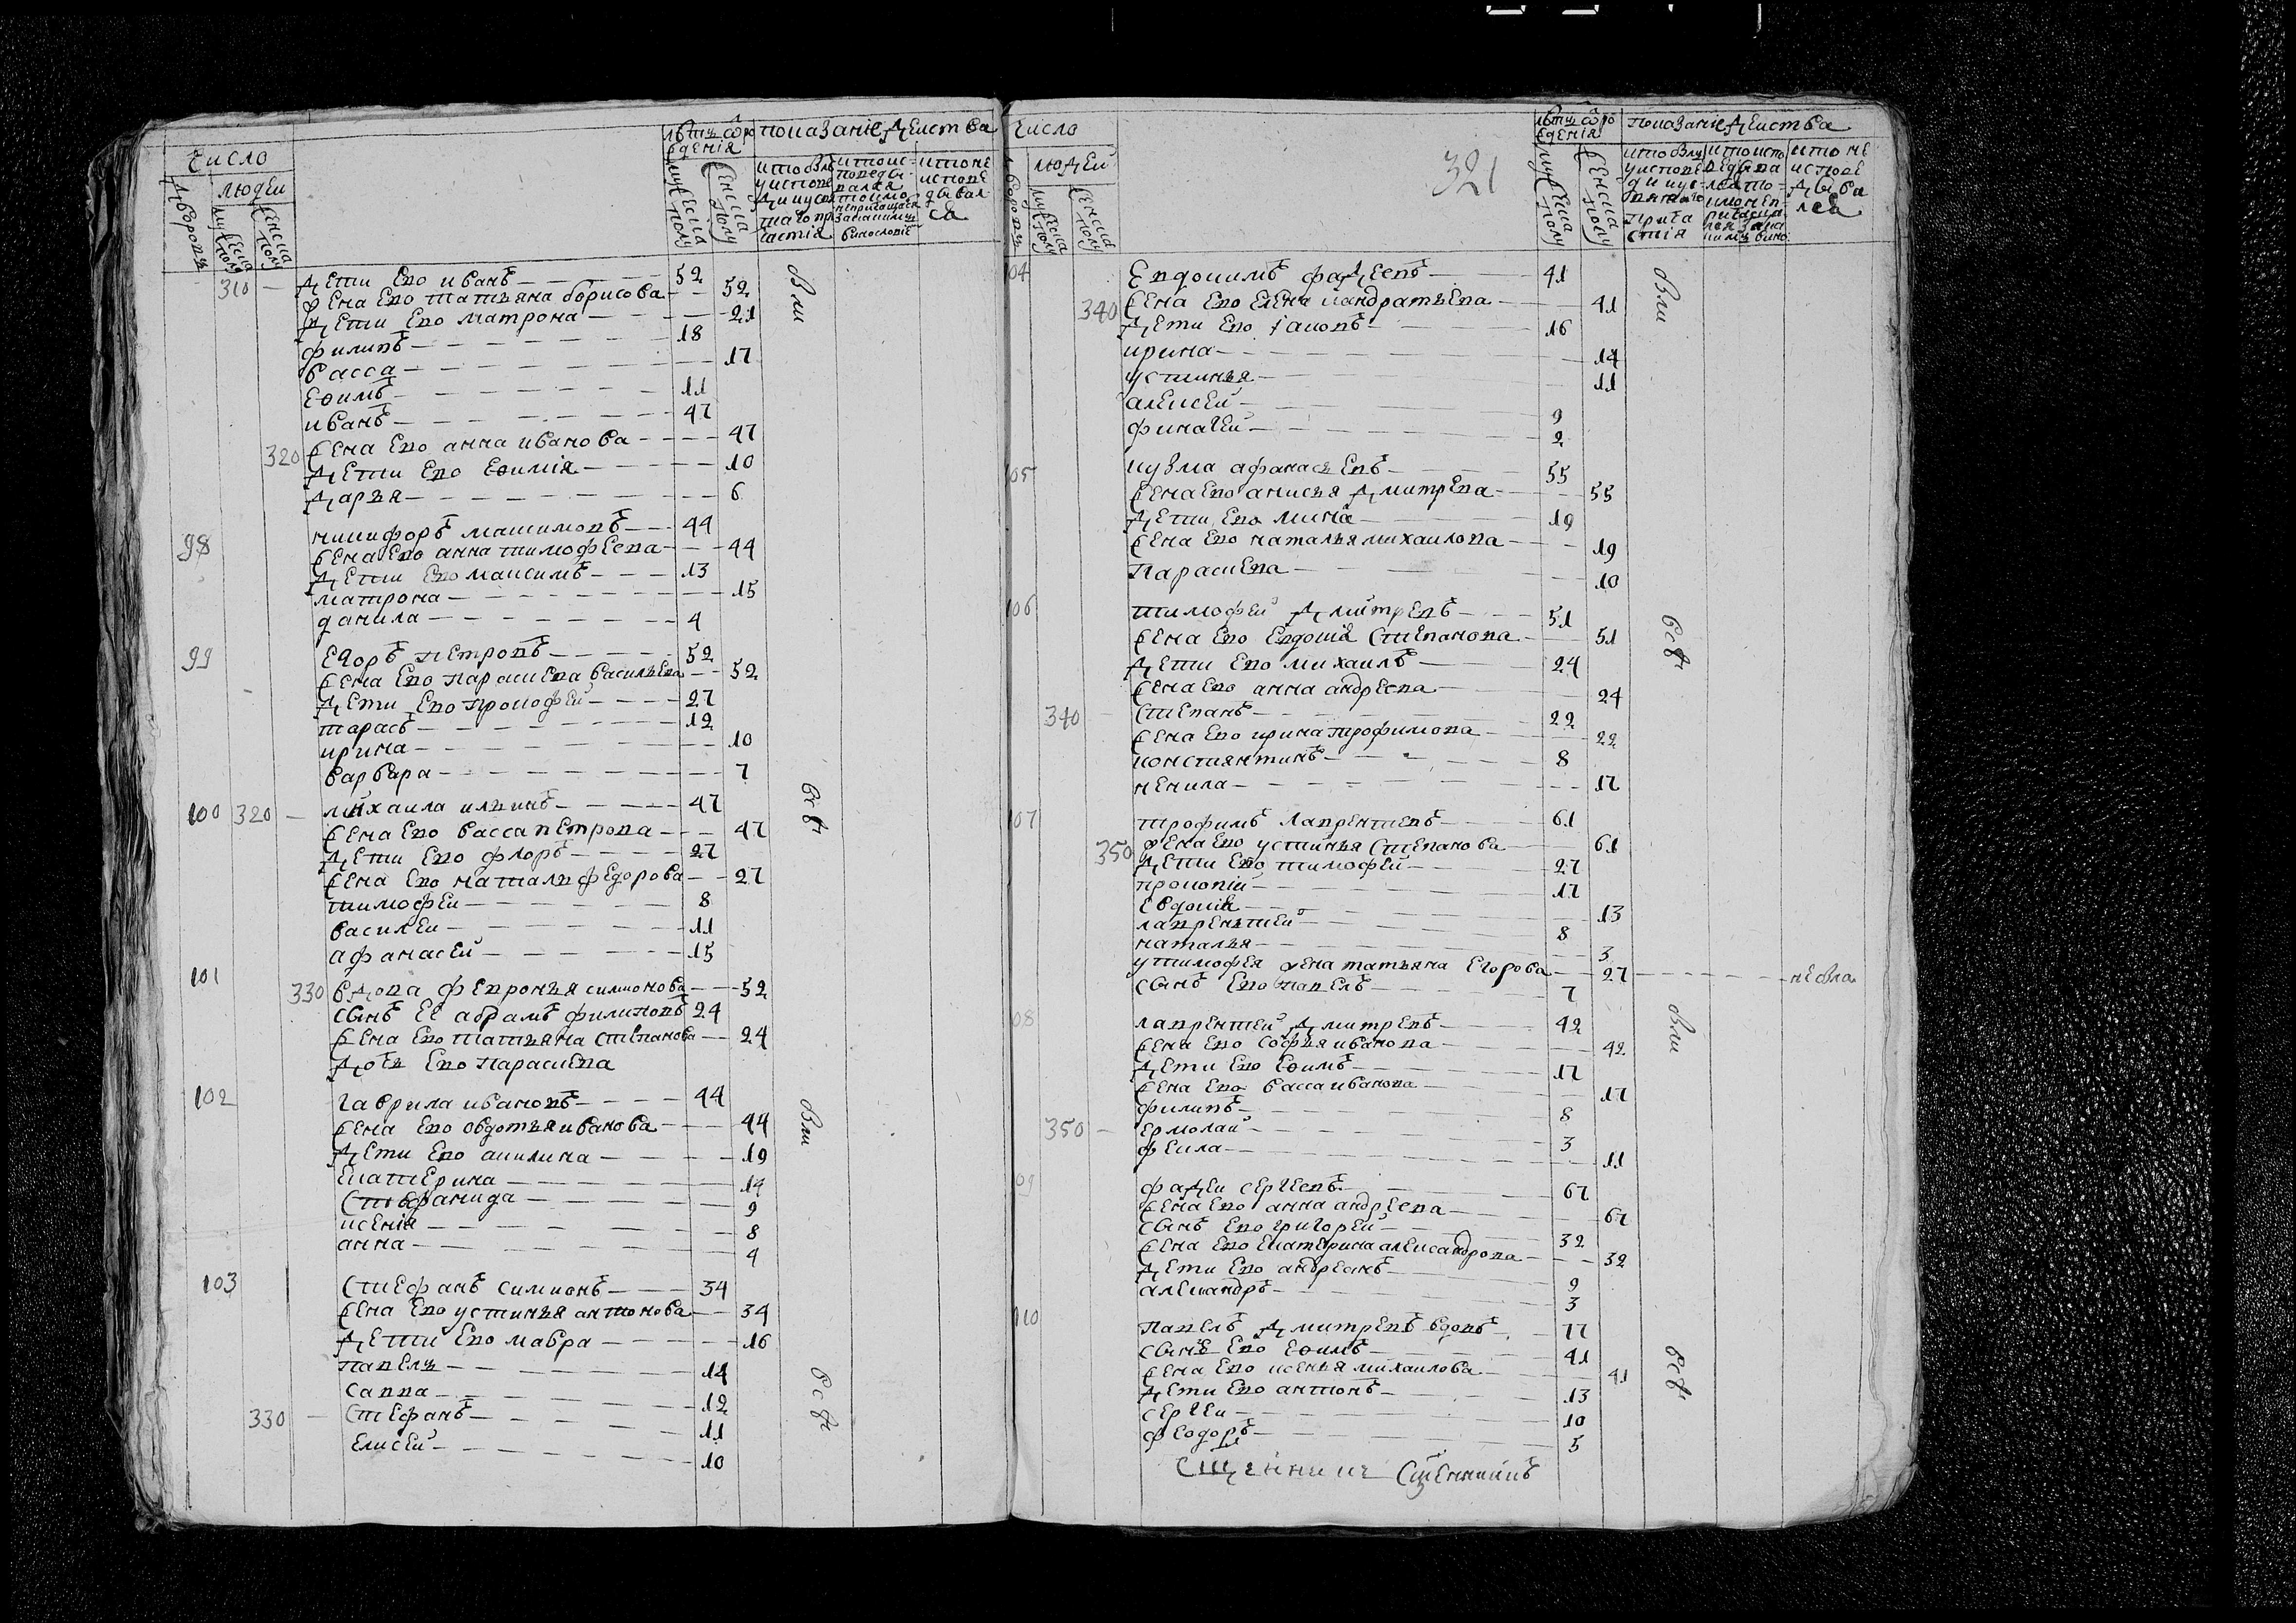 число
людей
дворовъ
мужеска полу
женска полу
лѣтъ от рождения
показание действа
310 дети ево иванъ 52
жена ево татьяна борисова 52
дети ево матрона 21
филипъ 18
васса 17
еѳимъ 11
иванъ 47
жена ево анна иванова 47
320 дети ево еѳимія 10
дарья 6
98 никифоръ максимовъ 44
жена ево анна тимофеева 44
дети ево максимъ 13
матрона 15
данила 4
99 егоръ петровъ 52
жена ево парасшева васильева 52
дети ево прокофей 27
тарасъ 12
ирина 10
варвара 7
100 320 михаила ильинъ 47
жена ево васса петрова 47
дети ево флоръ 27
жена ево наталья федорова 27
тимофеи 8
василеи 11
афанасей 15
101 330 вдова февронья симионова 52
сынъ ее абрамъ филиповъ 24
жена ево татьяна степанова 24
дочь ево парасшева
102 гаврила ивановъ 44
жена ево овдотья иванова 44
дети ево акилина 19
екатерина 14
стефанида 9
ксенія 8
анна 4
103 стефанъ симионъ 34
жена ево устинья антонова 34
дети ево мавра 16
павелъ 14
савва 12
330 стефанъ 11
елисей 10
вли
всѣ
вли
всѣ
число
людей
321
показание действа
104 евдокимъ фадеевъ 41
340 жена ево елена кандратьева 41
дети ево іаковъ 16
ирина 14
устинья 11
алексей 9
финагей 2
105 кузма афанасьевъ 55
жена ево анисья дмитрева 55
дети ево мина 19
жена ево наталья михаилова 19
парасшева 10
106 тимофей дмитревъ 51
жена ево евдокиа степанова 51
дети ево михаилъ 24
жена ево анна андреева 24
340 степанъ 22
жена ево ирина трофимова 22
констянтинъ 8
ненила 17
107 трофимъ лаврентиевъ 61
350 жена ево устинья степанова 61
дети ево тимофей 27
прокопій 17
евдокиа 13
лаврентией 8
наталья 3
у тимофея жена татьяна егорова 27 не вла
сынъ ево павелъ 7
108 лаврентей дмитревъ 42
жена ево софья иванова 42
дети ево еѳимъ 17
жена ево васса иванова 17
филипъ 8
350 ермолай 3
фекла 11
109 фадеи сергеевъ 67
жена ево анна андреева 67
сынъ ево григорей 32
жена ево екатерина александрова 32
дети ево андреянъ 9
александръ 3
110 павелъ дмитревъ вдовъ 77
сынъ ево еѳимъ 41
жена ево ксенья михаилова 41
дети ево антонъ 13
сергеи 10
феодоръ 5
вли
всѣ
вли
всѣ